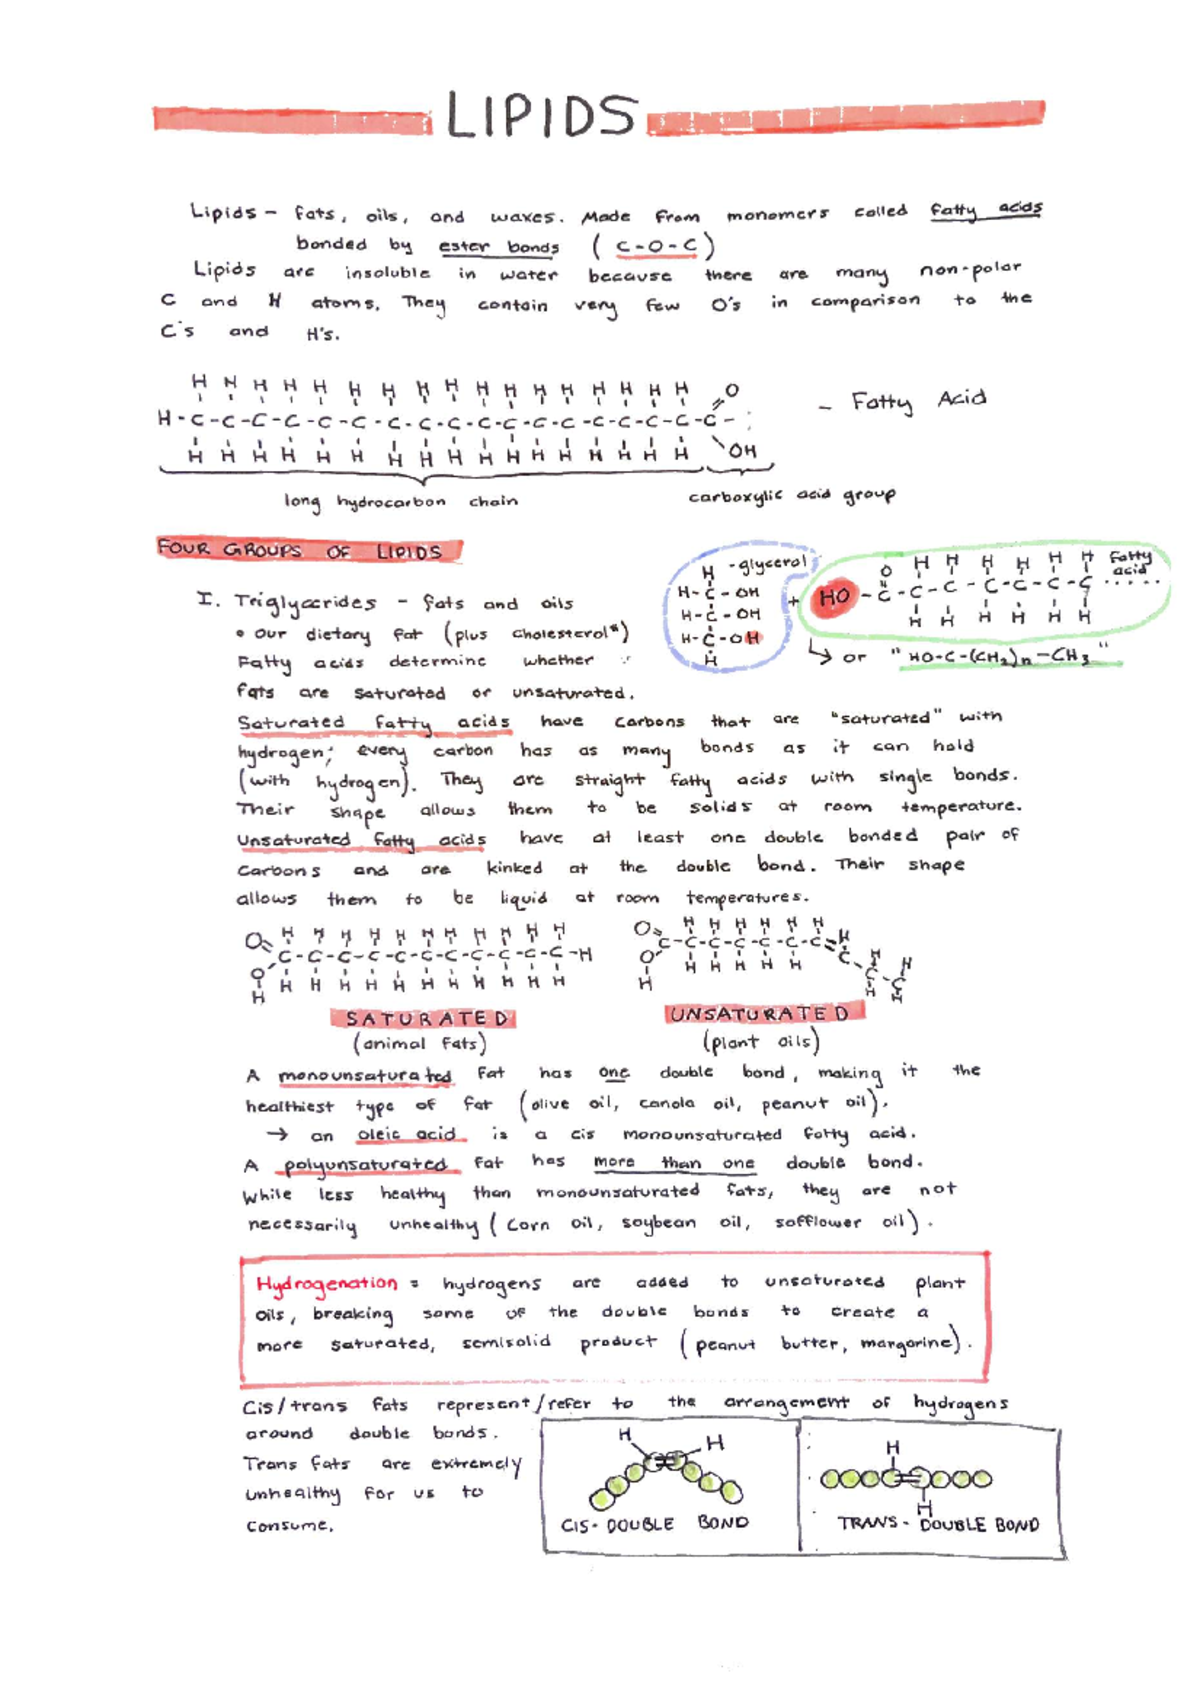 LIPIDS
Lipids - fats, oils, and waxes. Made from monomers called fatty acids
bonded by ester bonds (C-O-C)
Lipids are insoluble in water because there are many non-polar
C and H atoms. They contain very few O's in comparison to the
C's and H's.
H H H H H H H H H H H H H H H H H O
H-C-C-C-C-C-C-C-C-C-C-C-C-C-C-C-C-C-C-
H H H H H H H H H H H H H H H H H OH
- Fatty Acid
long hydrocarbon chain
carboxylic acid group
FOUR GROUPS OF LIPIDS
I. Triglycerides - fats and oils
• our dietary fat (plus cholesterol*)
Fatty acids determine whether
fats are saturated or unsaturated.
H -glycerol
H-C-OH
H-C-OH
H-C-OH
H
+
O H H H H H H Fatty acid
HO-C-C-C-C-C-C-C ......
H H H H H H
↳ or "HO-C-(CH₂)n-CH₃"
Saturated fatty acids have carbons that are "saturated" with
hydrogen; every carbon has as many bonds as it can hold
(with hydrogen). They are straight fatty acids with single bonds.
Their shape allows them to be solids at room temperature.
Unsaturated fatty acids have at least one double bonded pair of
carbons and are kinked at the double bond. Their shape
allows them to be liquid at room temperatures.
O H H H H H H H H H H
C-C-C-C-C-C-C-C-C-C-C-H
O H H H H H H H H H H
H
SATURATED
(animal fats)
O H H H H H H
C-C-C-C-C-C-C=C H
O H H H H H C H C H
H H H
UNSATURATED
(plant oils)
A monounsaturated fat has one double bond, making it the
healthiest type of fat (olive oil, canola oil, peanut oil).
→ an oleic acid is a cis monounsaturated fatty acid.
A polyunsaturated fat has more than one double bond.
While less healthy than monounsaturated fats, they are not
necessarily unhealthy (corn oil, soybean oil, safflower oil).
Hydrogenation = hydrogens are added to unsaturated plant
oils, breaking some of the double bonds to create a
more saturated, semisolid product (peanut butter, margarine).
Cis/trans fats represent/refer to the arrangement of hydrogens
around double bonds.
Trans fats are extremely
unhealthy for us to
consume.
H H
CIS-DOUBLE BOND
H
H
TRANS-DOUBLE BOND